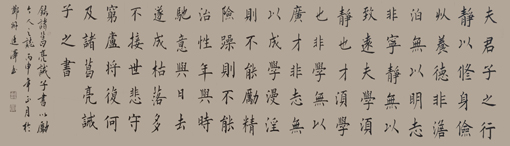 夫君子之行
靜以修身儉
以養德非澹
泊無以明志
非寧靜無以
致遠夫學須
靜也才須學
也非學無以
廣才非志無
以成學漫淫
則不能勵精
險躁則不能
治性年與時
馳意與日去
遂成枯落多
不接世悲守
窮廬將復何
及諸葛亮誡
子之書
錄諸葛亮誡子書以勵
丙申年 月於
鄭州